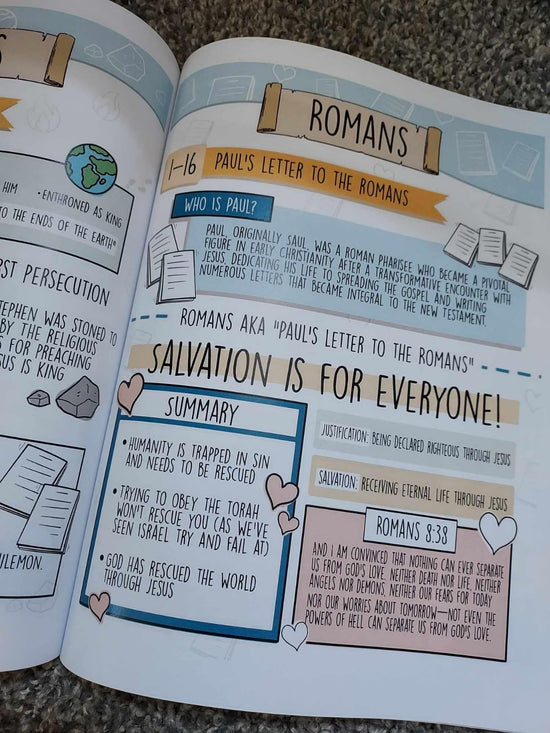 S
HIM
•ENTHRONED AS KING
TO THE ENDS OF THE EARTH"
PERSECUTION
STEPHEN WAS STONED TO
BY THE RELIGIOUS
FOR PREACHING
IS KING
ROMANS
1-16
PAUL'S LETTER TO THE ROMANS
WHO IS PAUL?
PAUL, ORIGINALLY SAUL, WAS A ROMAN PHARISEE WHO BECAME A PIVOTAL
FIGURE IN EARLY CHRISTIANITY AFTER A TRANSFORMATIVE ENCOUNTER WITH
JESUS, DEDICATING HIS LIFE TO SPREADING THE GOSPEL AND WRITING
NUMEROUS LETTERS THAT BECAME INTEGRAL TO THE NEW TESTAMENT.
ROMANS AKA "PAUL'S LETTER TO THE ROMANS"
SALVATION IS FOR EVERYONE!
SUMMARY
•HUMANITY IS TRAPPED IN SIN
AND NEEDS TO BE RESCUED
•TRYING TO OBEY THE TORAH
WON'T RESCUE YOU (AS WE'VE
SEEN ISRAEL TRY AND FAIL AT)
•GOD HAS RESCUED THE WORLD
THROUGH JESUS
JUSTIFICATION: BEING DECLARED RIGHTEOUS THROUGH JESUS
SALVATION: RECEIVING ETERNAL LIFE THROUGH JESUS
ROMANS 8:38
AND I AM CONVINCED THAT NOTHING CAN EVER SEPARATE
US FROM GOD'S LOVE. NEITHER DEATH NOR LIFE, NEITHER
ANGELS NOR DEMONS, NEITHER OUR FEARS FOR TODAY
NOR OUR WORRIES ABOUT TOMORROW—NOT EVEN THE
POWERS OF HELL CAN SEPARATE US FROM GOD'S LOVE.